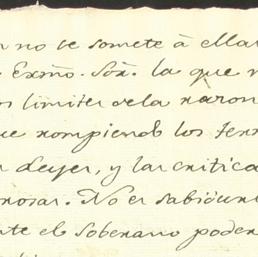 no se somete á ella
Exmo. Sor. la que
limites dela razon
que rompiendo los
Leyes, y las critica
No es sabidu
el soberano poder